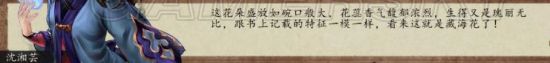 这花朵盛放如碗口般大，花蕊香气馥郁浓烈，生得又是瑰丽无
比，跟书上记载的特征一模一样，看来这就是藏海花了！
沈湘芸